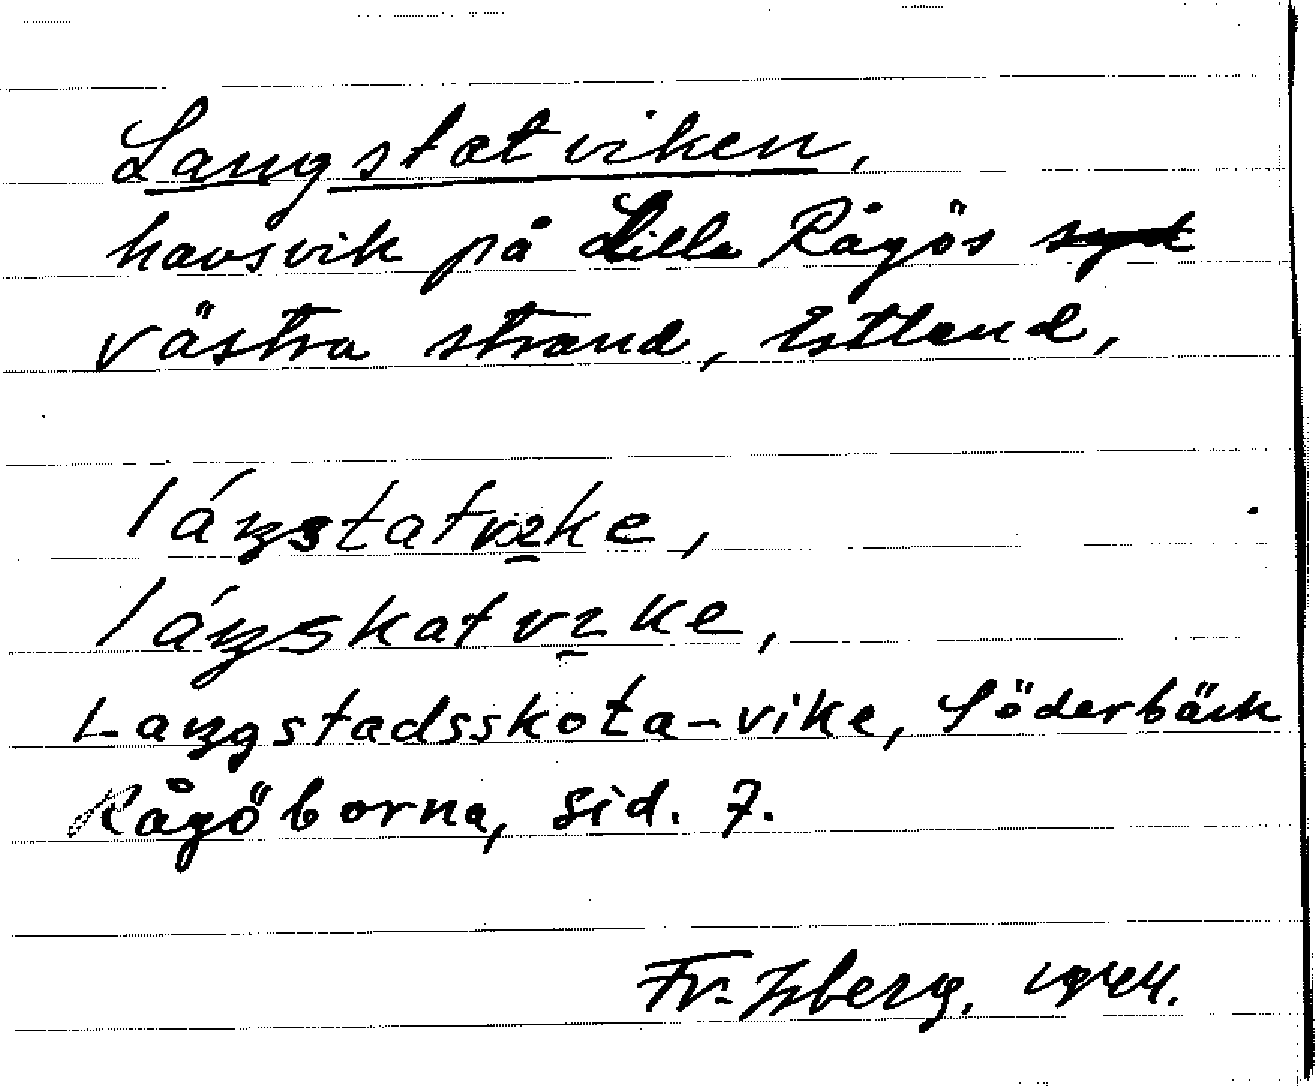 Langstatviken,
havsvik på Lilla Rågös syd
västra strand, Estland,
láŋstatvıke,
láŋskatvıke,
Laŋgstadsskota-vike, Söderbäck
Rågöborna, sid. 7.
Fr. Isberg. 1944.